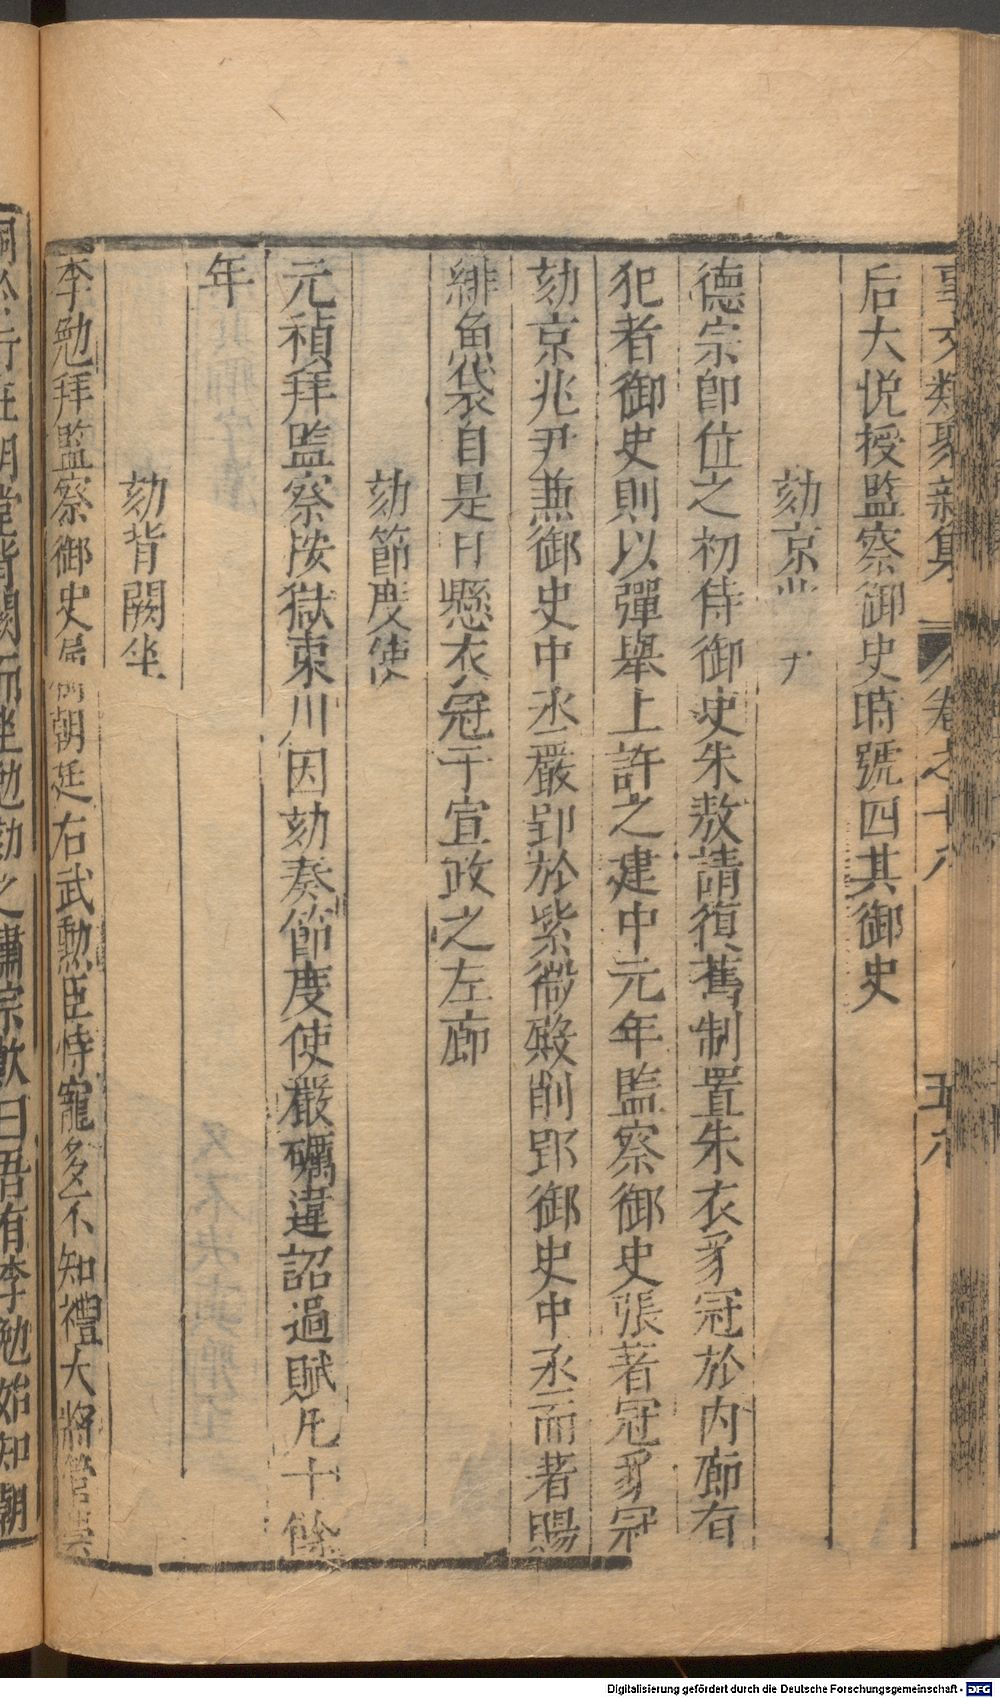 事文類聚新集 卷之十八 五十八
后大悦授監察御史時號四其御史
劾京兆尹
德宗卽位之初侍御史朱敖請復舊制置朱衣豸冠於內廊有
犯者御史則以彈舉上許之建中元年監察御史張著冠豸冠
劾京兆尹兼御史中丞嚴郢於紫微殿削郢御史中丞而著賜
緋魚袋自是日懸衣冠于宣政之左廊
劾節度使
元稹拜監察按獄東川因劾奏節度使嚴礪違詔過賦凡十餘
年
劾背闕坐
李勉拜監察御史屬朝廷右武勲臣恃寵多不知禮大將管崇
嗣於行在朝堂背闕而坐勉劾之肅宗歎曰吾有李勉始知朝
Digitalisierung gefördert durch die Deutsche Forschungsgemeinschaft - DFG